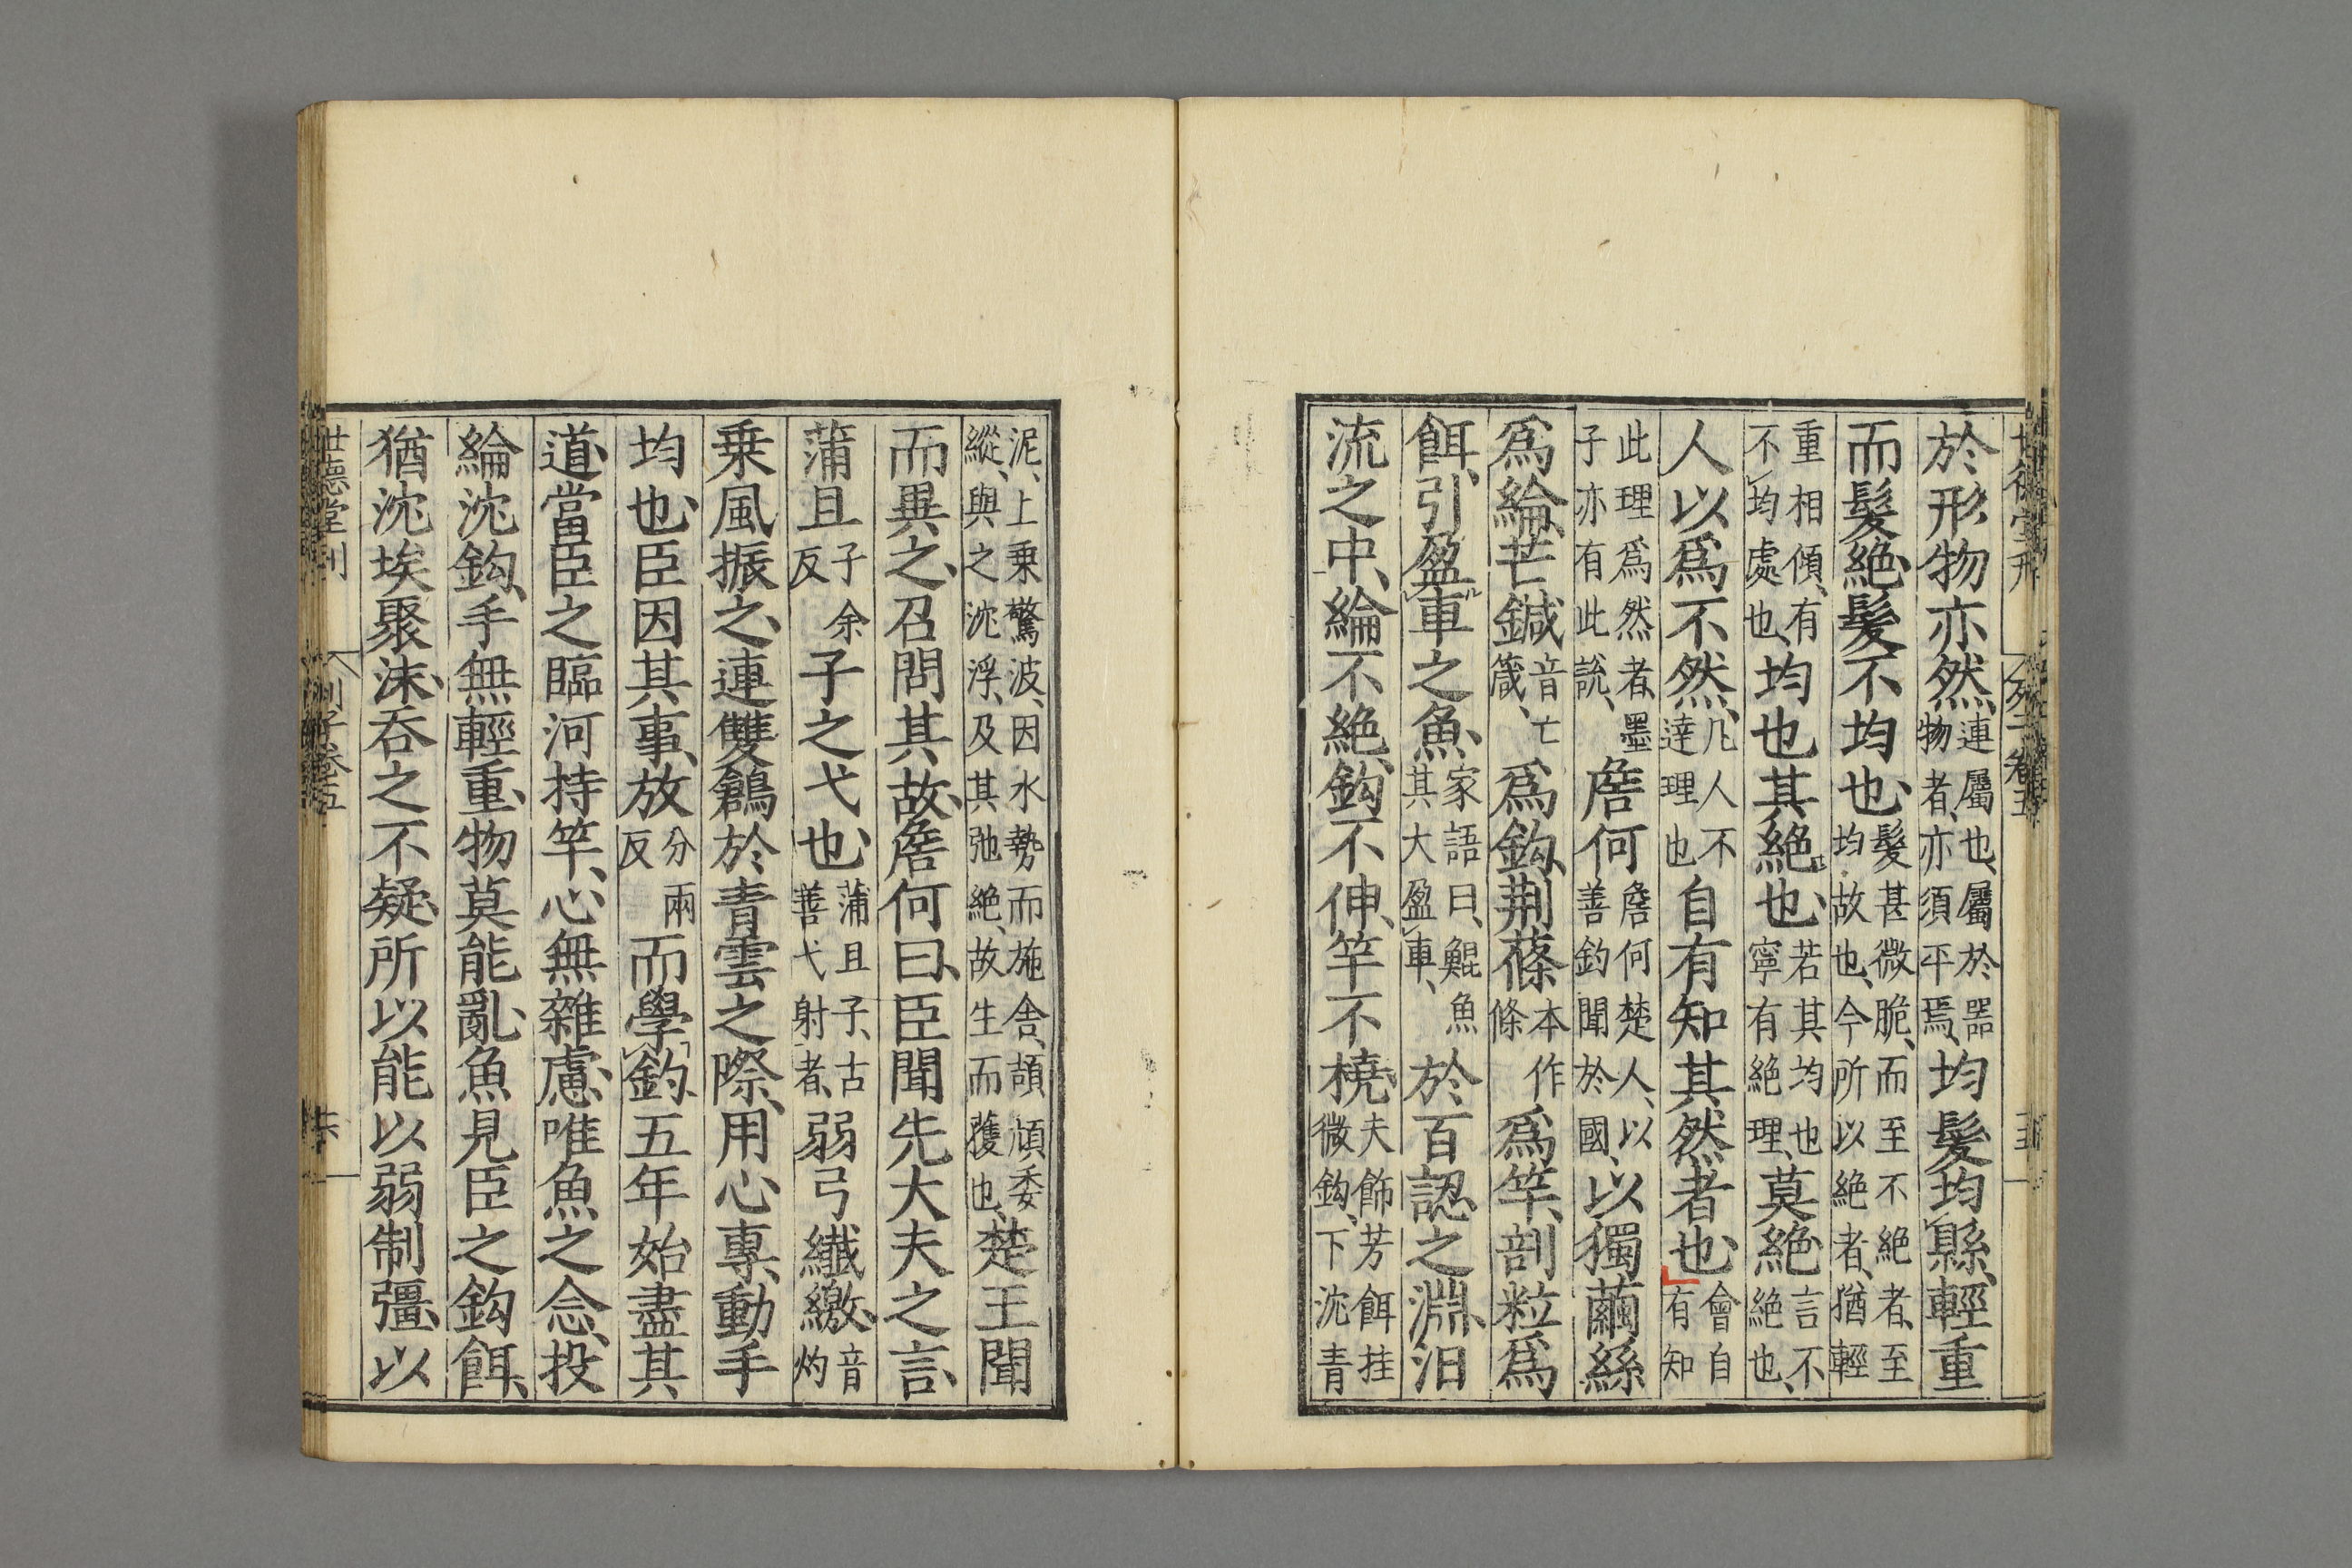 於形物亦然、連屬也、屬於器物者、亦須平焉、均髮均縣、輕重
而髮絶、髮不均也、髮甚微脆、而至不絶者、至均故也、今所以絶者、猶輕
重相傾、有不均處也、均也其絶也、若其均也寧有絶理、莫絶言不絶也、
人以爲不然、凡人不達理也自有知其然者也、會自有知
此理爲然者、墨子亦有此說、詹何詹何楚人、以善釣聞於國、以獨繭絲
爲綸、芒鍼音亡箴、爲鈎、荆蓧本作條爲竿、剖粒爲
餌、引盈車之魚、家語曰、鯤魚其大盈車、於百認之淵、汩
流之中、綸不絶、鈎不伸、竿不橈、夫飾芳餌挂微鈎、下沈青
泥、上乗驚波、因水勢而施舍、頡頏委縱、與之沈浮、及其弛絶、故生而獲也、楚王聞
而異之、召問其故、詹何曰、臣聞先大夫之言、
蒲且子余反子之弋也、蒲且子、古善弋射者、弱弓纎繳、音灼
乗風振之、連雙鶬於青雲之際、用心專、動手
均也、臣因其事、放分兩反而學釣、五年始盡其
道、當臣之臨河持竿、心無雜慮、唯魚之念、投
綸沈鈎、手無輕重、物莫能亂、魚見臣之鈎餌、
猶沈埃聚沫、吞之不疑、所以能以弱制彊、以
世德堂刊 列子卷五